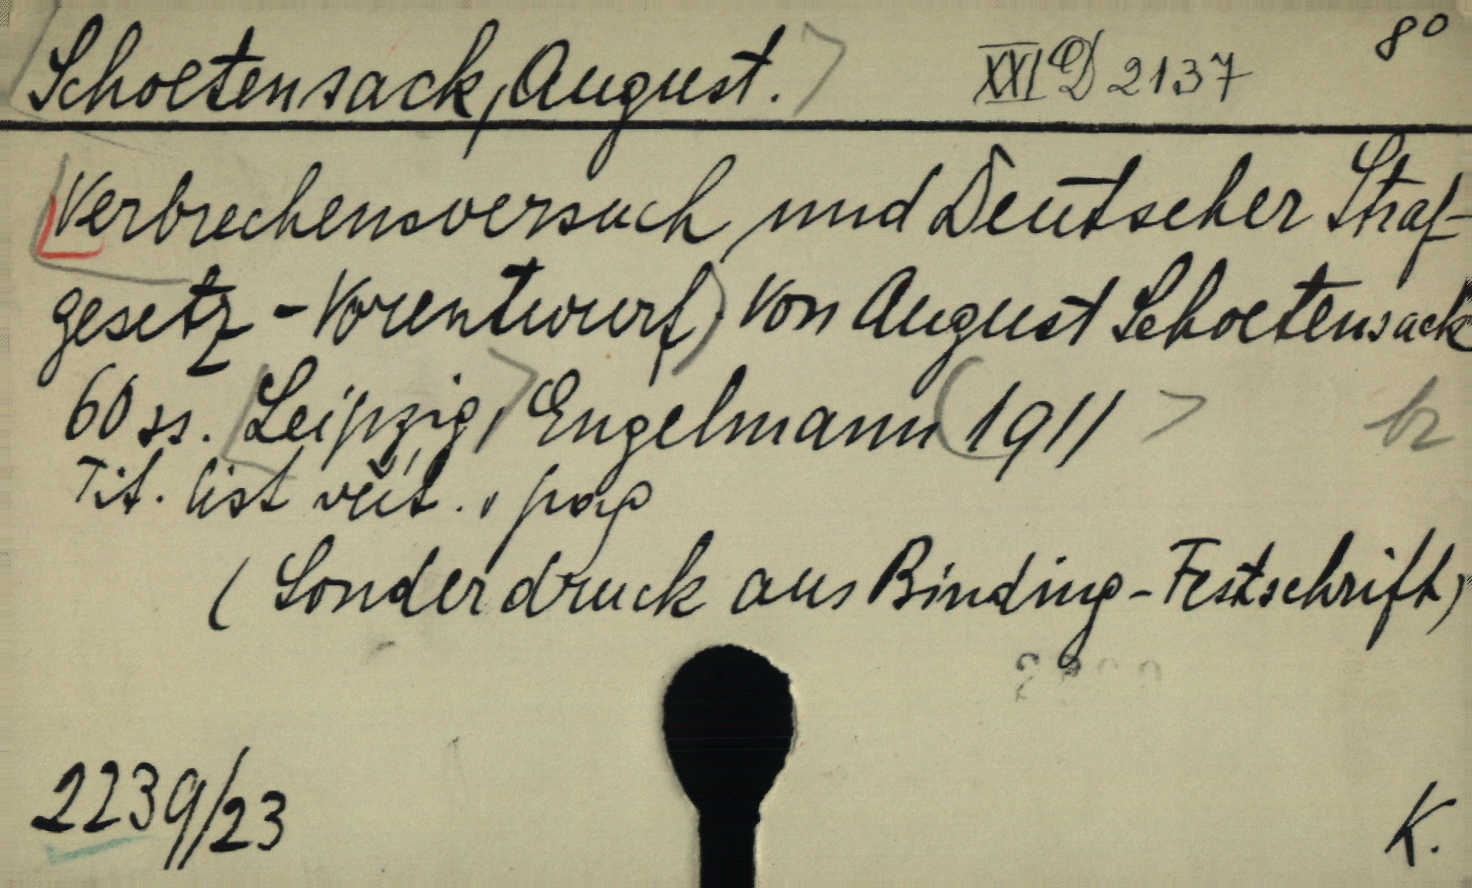 Schoetensack, August. XXI D 2137 8°
Verbrechensversuch und Deutscher Straf-
gesetz-Vorentwurf. Von August Schoetensack
60 ss. Leipzig, Engelmann 1911
Tit. list
(Sonderdruck aus Binding-Festschrift)
2239/23 K.